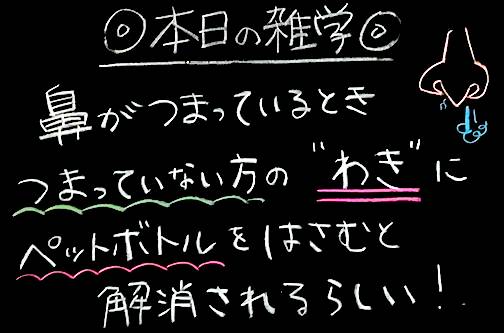 ◎本日の雑学◎
鼻がつまっているとき
つまっていない方の"わき"に
ペットボトルをはさむと
解消されるらしい!